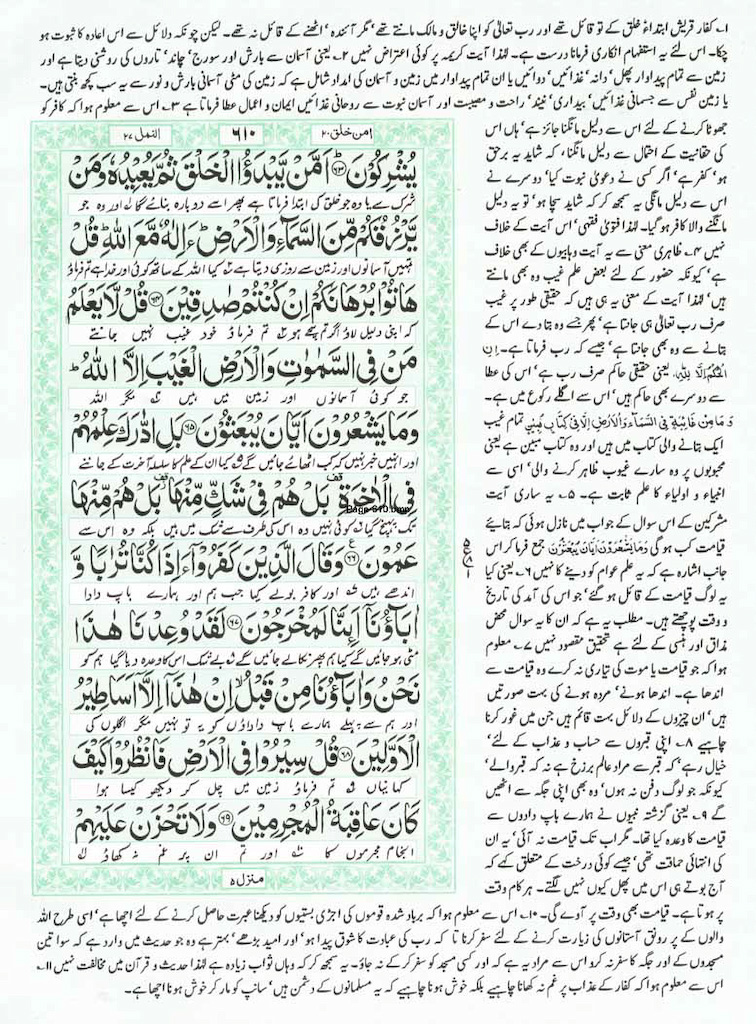 ۱۔ کفار قریش ابتداءً خلق کے تو قائل تھے اور رب تعالیٰ کو اپنا خالق و مالک مانتے تھے' مگر آئندہ' اٹھنے کے قائل نہ تھے۔ لیکن چونکہ دلائل سے اس اعادہ کا ثبوت ہو
چکا۔ اس لئے یہ استفہام انکاری فرمانا درست ہے۔ لہٰذا آیت کریمہ پر کوئی اعتراض نہیں ۲۔ یعنی آسمان سے بارش اور سورج' چاند' تاروں کی روشنی دیتا ہے اور
زمین سے تمام پیداوار پھل' دانہ' غذائیں' دوائیں یا ان تمام پیداوار میں زمین و آسمان کی امداد شامل ہے کہ زمین کی مٹی آسمانی بارش و نور سے یہ سب کچھ بنتی ہیں۔
یا زمین نفس سے جسمانی غذائیں' بیداری' نیند' راحت و مصیبت اور آسمان نبوت سے روحانی غذائیں ایمان و اعمال عطا فرماتا ہے ۳۔ اس سے معلوم ہوا کہ کافر کو
جھوٹا کرنے کے لئے اس سے دلیل مانگنا جائز ہے' ہاں اس
کی حقانیت کے احتمال سے دلیل مانگنا' کہ شاید یہ برحق
ہو' کفر ہے' اگر کسی نے دعویٰ نبوت کیا' دوسرے نے
اس سے دلیل مانگی یہ سمجھ کر کہ شاید سچا ہو' تو یہ دلیل
مانگنے والا کافر ہو گیا۔ لہٰذا فتویٰ فقہی' اس آیت کے خلاف
نہیں ۴۔ ظاہری معنی سے یہ آیت وہابیوں کے بھی خلاف
ہے' کیونکہ حضور کے لئے بعض علم غیب وہ بھی مانتے
ہیں' لہٰذا آیت کے معنی یہ ہی ہیں کہ حقیقی طور پر غیب
صرف رب تعالیٰ ہی جانتا ہے' پھر جسے وہ بتا دے اس کے
بتانے سے وہ بھی جانتا ہے' جیسے کہ رب فرماتا ہے۔ اِنِ
الْحُكْمُ اِلَّا لِلّٰهِ، یعنی حقیقی حاکم صرف رب ہے' اس کی عطا
سے دوسرے بھی حاکم ہیں' اس سے اگلے رکوع میں ہے۔
وَمَا مِنْ غَائِبَةٍ فِي السَّمَآءِ وَالْاَرْضِ اِلَّا فِيْ كِتَابٍ مُّبِيْنٍ تمام غیب
ایک بتانے والی کتاب میں ہیں اور وہ کتاب مبین ہے یعنی
محبوبوں پر وہ سارے غیوب ظاہر کرنے والی' اسی سے
انبیاء و اولیاء کا علم ثابت ہے۔ ۵۔ یہ ساری آیت
مشرکین کے اس سوال کے جواب میں نازل ہوئی کہ بتائیے
قیامت کب ہو گی وَمَا يَشْعُرُوْنَ اَيَّانَ يُبْعَثُوْنَ جمع فرما کر اس
جانب اشارہ ہے کہ یہ علم عوام کو دینے کا نہیں ۶۔ یعنی کیا
یہ لوگ قیامت کے قائل ہو گئے' جو اس کی آمد کی تاریخ
و وقت پوچھتے ہیں۔ مطلب یہ ہے کہ ان کا یہ سوال محض
مذاق اور ہنسی کے لئے ہے تحقیق مقصود نہیں ۷۔ معلوم
ہوا کہ جو قیامت یا موت کی تیاری نہ کرے وہ قیامت سے
اندھا ہے۔ اندھا ہونے' مردہ ہونے کی بہت صورتیں
ہیں' ان چیزوں کے دلائل بہت قائم ہیں جن میں غور کرنا
چاہیے ۸۔ اپنی قبروں سے حساب و عذاب کے لئے'
خیال رہے' کہ قبر سے مراد عالم برزخ ہے نہ کہ قبر والے'
کیونکہ جو لوگ دفن نہ ہوں' وہ بھی اپنی جگہ سے اٹھیں
گے ۹۔ یعنی گزشتہ نبیوں نے ہمارے باپ دادوں سے
قیامت کا وعدہ کیا تھا۔ مگر اب تک قیامت نہ آئی' یہ ان
کی انتہائی حماقت تھی' جیسے کوئی درخت کے متعلق کہے کہ
آج بوتے ہی اس میں پھل کیوں نہیں لگتے۔ ہر کام وقت
امن خلق ۲۰
۶۱۰
النمل ۲۷
يُشْرِكُوْنَ ﴿۶۳﴾ اَمَّنْ يَّبْدَؤُا الْخَلْقَ ثُمَّ يُعِيْدُهٗ وَمَنْ
شرک سے یا وہ جو خلق کی ابتدا فرماتا ہے پھر اسے دوبارہ بنائے گا اور وہ جو
يَّرْزُقُكُمْ مِّنَ السَّمَآءِ وَالْاَرْضِ ءَاِلٰهٌ مَّعَ اللّٰهِ قُلْ
تمہیں آسمانوں اور زمین سے روزی دیتا ہے کیا اللہ کے ساتھ کوئی اور خدا ہے تم فرماؤ
هَاتُوْا بُرْهَانَكُمْ اِنْ كُنْتُمْ صٰدِقِيْنَ ﴿۶۴﴾ قُلْ لَّا يَعْلَمُ
کہ اپنی دلیل لاؤ اگر تم سچے ہو تم فرماؤ خود غیب نہیں جانتے
مَنْ فِي السَّمٰوٰتِ وَالْاَرْضِ الْغَيْبَ اِلَّا اللّٰهُ
جو کوئی آسمانوں اور زمین میں ہیں مگر اللہ
وَمَا يَشْعُرُوْنَ اَيَّانَ يُبْعَثُوْنَ ﴿۶۵﴾ بَلِ ادّٰرَكَ عِلْمُهُمْ
اور انہیں خبر نہیں کہ کب اٹھائے جائیں گے کیا ان کے علم کا سلسلہ آخرت کے جاننے
فِي الْاٰخِرَةِ بَلْ هُمْ فِيْ شَكٍّ مِّنْهَا بَلْ هُمْ مِّنْهَا
Page-610.bmp
تک پہنچ گیا کوئی نہیں وہ اس کی طرف سے شک میں ہیں بلکہ وہ اس سے
عَمُوْنَ ﴿۶۶﴾ وَقَالَ الَّذِيْنَ كَفَرُوْٓا ءَاِذَا كُنَّا تُرٰبًا وَّ
اندھے ہیں اور کافر بولے کیا جب ہم اور ہمارے باپ دادا
اٰبَآؤُنَآ اَئِنَّا لَمُخْرَجُوْنَ ﴿۶۷﴾ لَقَدْ وُعِدْنَا هٰذَا
مٹی ہو جائیں گے کیا ہم پھر نکالے جائیں گے بے شک اس کا وعدہ دیا گیا ہم کو
نَحْنُ وَاٰبَآؤُنَا مِنْ قَبْلُ اِنْ هٰذَآ اِلَّآ اَسَاطِيْرُ
اور ہم سے پہلے ہمارے باپ داداؤں کو یہ تو نہیں مگر اگلوں کی
الْاَوَّلِيْنَ ﴿۶۸﴾ قُلْ سِيْرُوْا فِي الْاَرْضِ فَانْظُرُوْا كَيْفَ
کہانیاں تم فرماؤ زمین میں چل کر دیکھو کیسا ہوا
كَانَ عَاقِبَةُ الْمُجْرِمِيْنَ ﴿۶۹﴾ وَلَا تَحْزَنْ عَلَيْهِمْ
انجام مجرموں کا اور تم ان پر غم نہ کھاؤ
منزل ۵
پر ہوتا ہے۔ قیامت بھی وقت پر آوے گی۔ ۱۰۔ اس سے معلوم ہوا کہ برباد شدہ قوموں کی اجڑی بستیوں کو دیکھنا عبرت حاصل کرنے کے لئے اچھا ہے' اسی طرح اللہ
والوں کے پر رونق آستانوں کی زیارت کرنے کے لئے سفر کرنا تا کہ رب کی عبادت کا شوق پیدا ہو' اور امید بڑھے' بہتر ہے وہ جو حدیث میں وارد ہے کہ سوا تین
مسجدوں کے اور جگہ کا سفر نہ کرو اس سے مراد یہ ہے کہ اور کسی مسجد کو سفر کر کے نہ جاؤ۔ یہ سمجھ کر کہ وہاں ثواب زیادہ ہے لہٰذا حدیث و قرآن میں مخالفت نہیں ۱۱۔
اس سے معلوم ہوا کہ کفار کے عذاب پر غم نہ کھانا چاہیے بلکہ خوش ہونا چاہیے کہ یہ مسلمانوں کے دشمن ہیں' سانپ کو مار کر خوش ہونا اچھا ہے۔